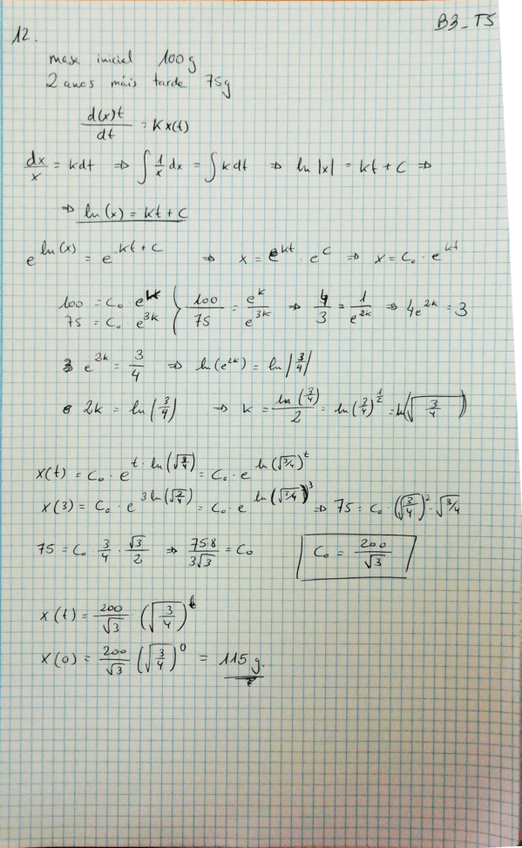 B3_T5
12.
masa inicial 100g
2 anos máis tarde 75g
d(x)t/dt = K x(t)
dx/x = kdt ⇒ ∫ 1/x dx = ∫ k dt ⇒ ln |x| = kt + C ⇒
⇒ ln (x) = kt + C
e^ln(x) = e^kt + C ⇒ x = e^kt · e^C ⇒ x = C₀ · e^kt
100 = C₀ · e^k
75 = C₀ · e^3k { 100/75 = e^k/e^3k ⇒ 4/3 = 1/e^2k ⇒ 4e^2k = 3
e^2k = 3/4 ⇒ ln(e^2k) = ln|3/4|
2k = ln(3/4) ⇒ k = ln(3/4)/2 = ln(3/4)^1/2 = ln(√3/4)
x(t) = C₀ · e^t·ln(√3/4) = C₀ · e^ln(√3/4)^t
x(3) = C₀ · e^3ln(√3/4) = C₀ · e^ln(√3/4)^3 ⇒ 75 = C₀ · (√3/4)^2 · √3/4
75 = C₀ · 3/4 · √3/2 ⇒ 75·8/3√3 = C₀ C₀ = 200/√3
x(t) = 200/√3 (√3/4)^t
x(0) = 200/√3 (√3/4)^0 = 115 g.